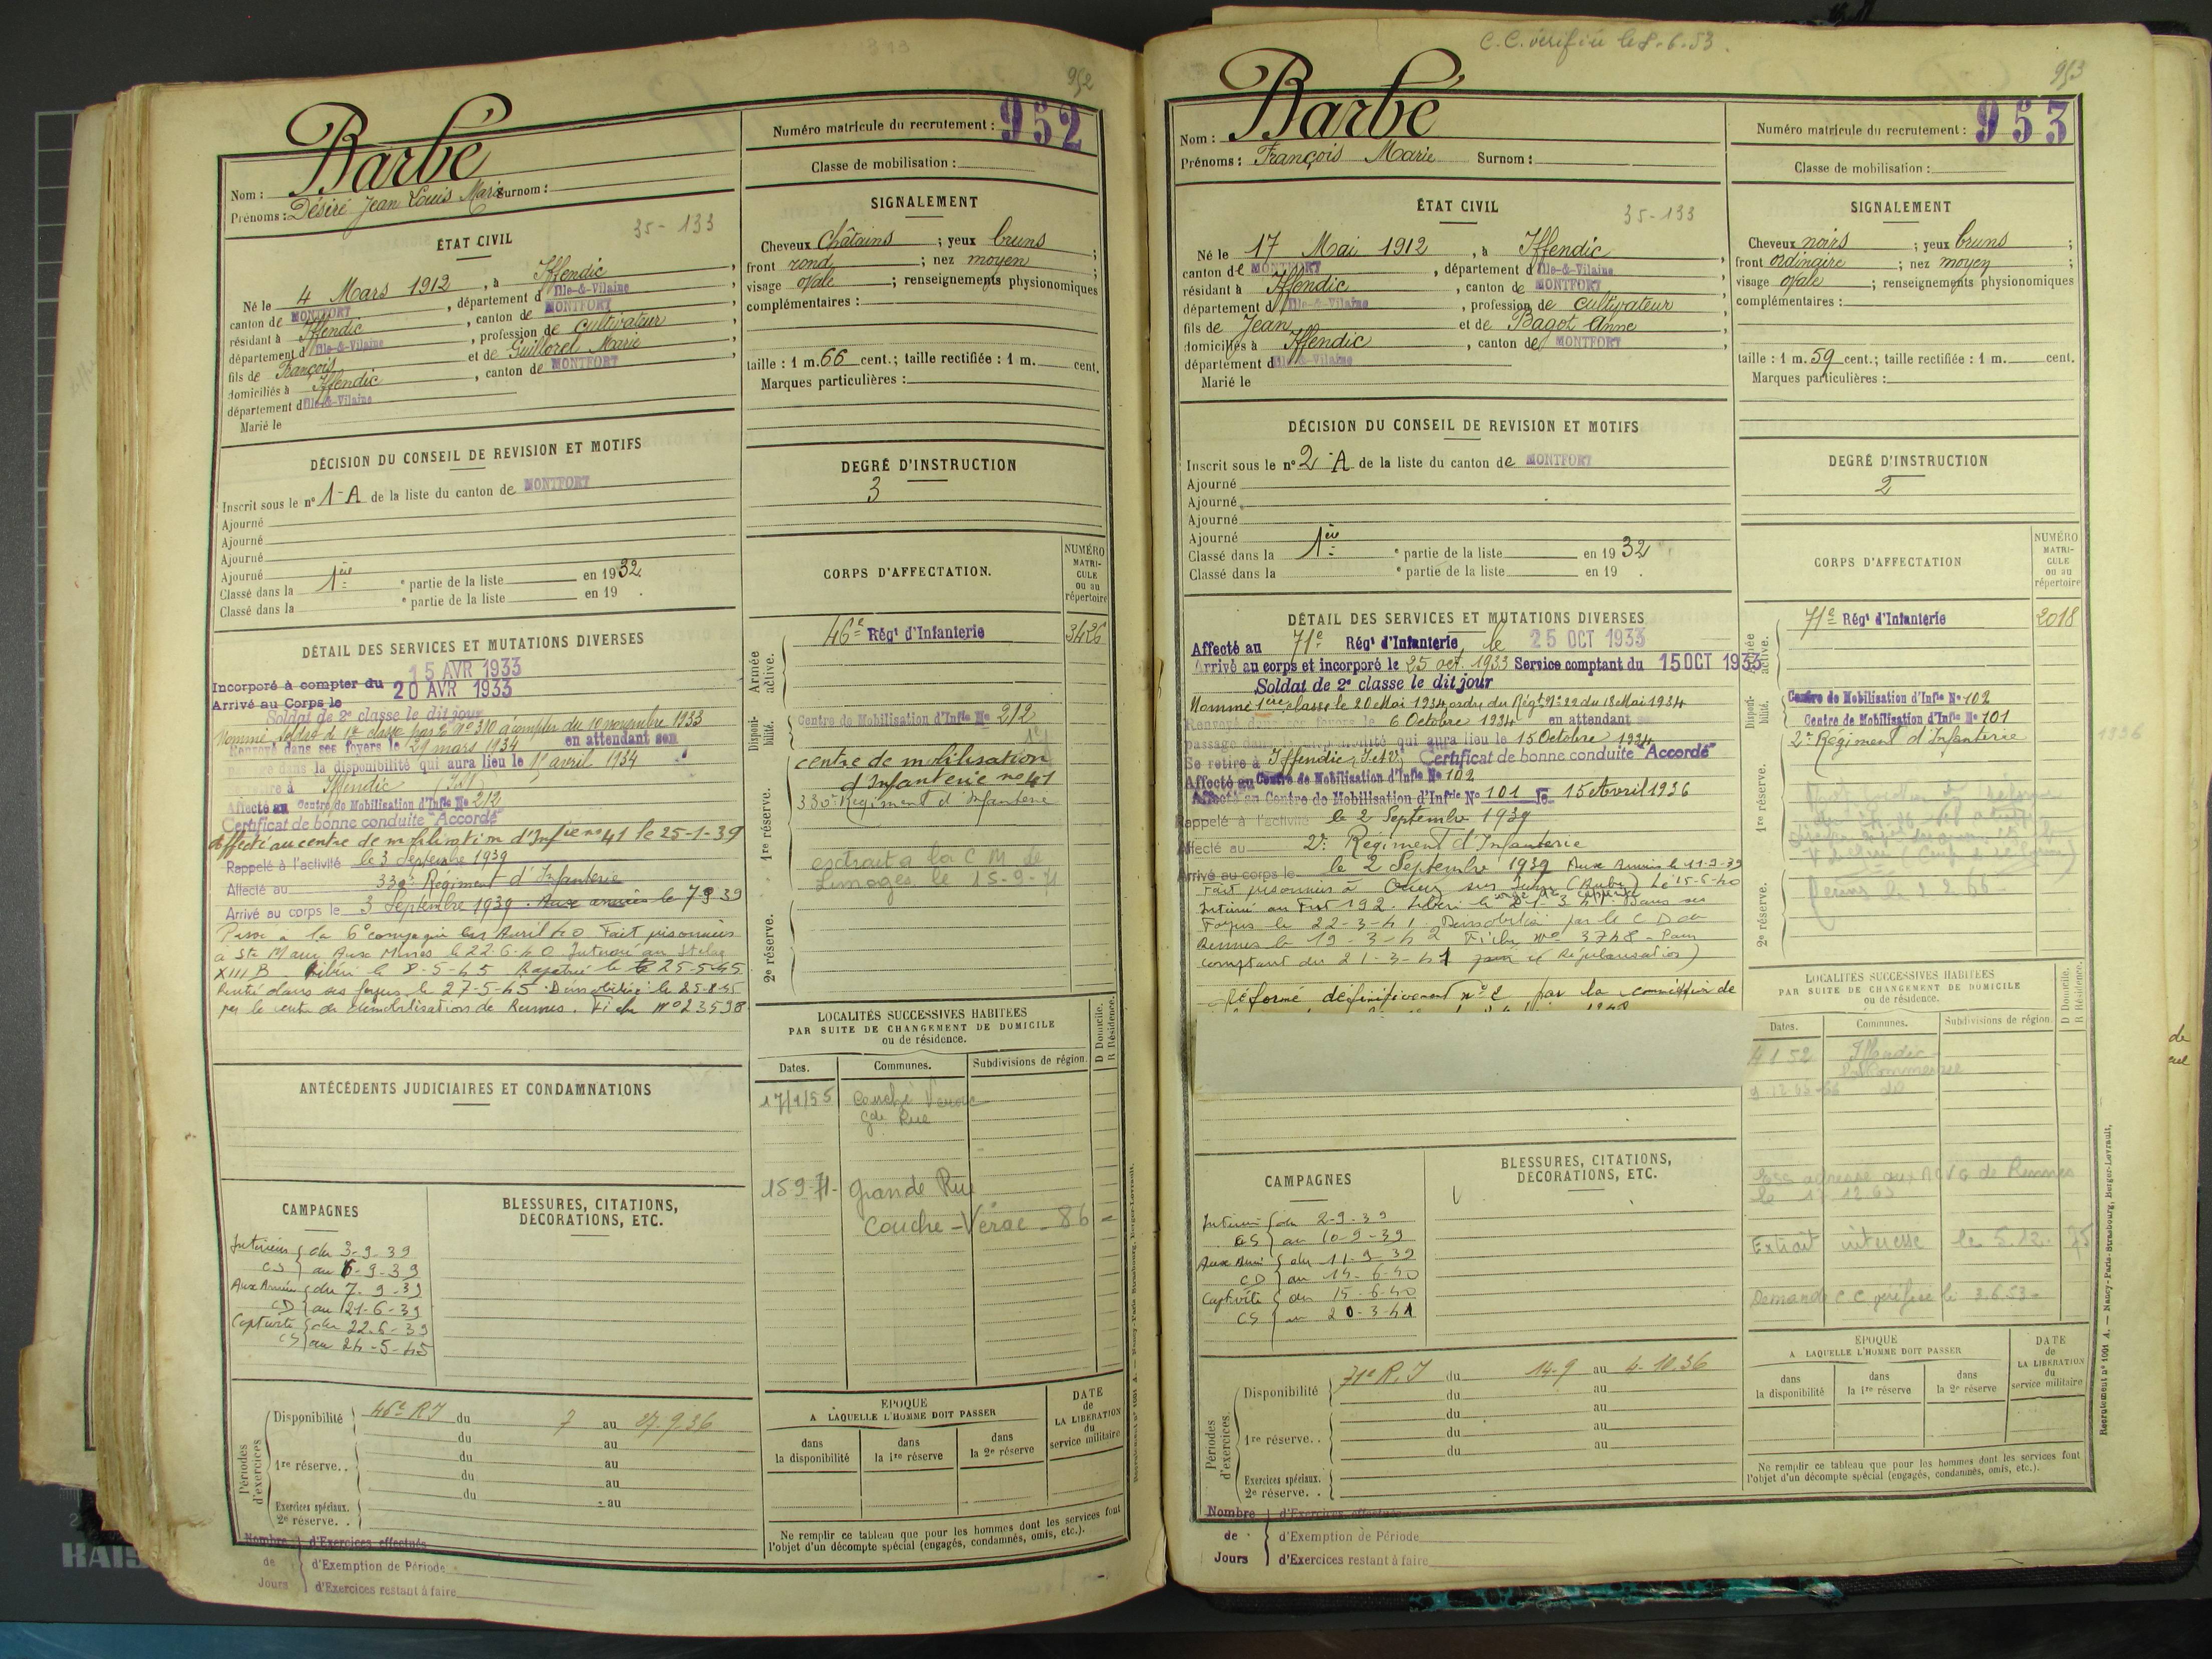 952
Barbé
Nom :
Prénoms : Désiré Jean Louis Marie Surnom :
Numéro matricule du recrutement : 952
Classe de mobilisation :
ÉTAT CIVIL
35-133
Né le 4 Mars 1912, à Iffendic,
canton de MONTFORT, département d'Ille-&-Vilaine
résidant à Iffendic, canton de MONTFORT,
département d'Ille-&-Vilaine, profession de cultivateur,
fils de François et de Guillorel Marie,
domiciliés à Iffendic, canton de MONTFORT,
département d'Ille-&-Vilaine
Marié le
SIGNALEMENT
Cheveux châtains ; yeux bruns ;
front rond ; nez moyen ;
visage ovale ; renseignements physionomiques
complémentaires :
taille : 1 m. 66 cent.; taille rectifiée : 1 m. cent.
Marques particulières :
DÉCISION DU CONSEIL DE REVISION ET MOTIFS
Inscrit sous le n° 1-A de la liste du canton de MONTFORT
Ajourné
Ajourné
Ajourné
Ajourné
Classé dans la 1ère e partie de la liste en 1932
Classé dans la e partie de la liste en 19 .
DEGRÉ D'INSTRUCTION
3
DÉTAIL DES SERVICES ET MUTATIONS DIVERSES
15 AVR 1933
Incorporé à compter du 20 AVR 1933
Arrivé au Corps le
Soldat de 2e classe le dit jour
Nommé soldat d 1e classe par O. N° 310 à compter du 10 novembre 1933
Renvoyé dans ses foyers le 29 mars 1934 en attendant son
dans la disponibilité qui aura lieu le 15 avril 1934
Iffendic
Affecté au Centre de Mobilisation d'Infie No 212
Certificat de bonne conduite "Accordé"
Affecté au centre de mobilisation d'Infie no 41 le 25-1-39
Rappelé à l'activité le 3 Septembre 1939
Affecté au 330e Régiment d'Infanterie
Arrivé au corps le 3 Septembre 1939. Aux armées le 7 9 39
Passé à la 6e compagnie en Avril 40 Fait prisonnier
à Ste Marie Aux Mines le 22-6-40 Interné au Stalag
XIII B Libéré le 8-5-45 Rapatrié le 25-5-45
Rentré dans ses foyers le 27-5-45. Démobilisé le 25-8-45
par le centre de démobilisation de Rennes. Fiche N° 23598
CORPS D'AFFECTATION.
NUMÉRO MATRICULE ou au répertoire
Armée active.
46e Régt d'Infanterie 3426
Disponibilité.
Centre de Mobilisation d'Infie No 212
1re réserve.
centre de mobilisation
d'Infanterie no 41
330e Régiment d'Infanterie
extrait a la C M de
Limoges le 15-9-71
2e réserve.
ANTÉCÉDENTS JUDICIAIRES ET CONDAMNATIONS
LOCALITÉS SUCCESSIVES HABITÉES
PAR SUITE DE CHANGEMENT DE DOMICILE
ou de résidence.
D Domicile. R Résidence.
Dates. Communes. Subdivisions de région.
17/1/55 Couché Verac
Gde Rue
15 9 71- Grande Rue
Couche-Vérac - 86 -
CAMPAGNES
Intérieur du 3-9-39
CS au 6-9-39
Aux Armées du 7-9-39
CD au 21-6-39
Captivité du 22-6-39
CS au 24-5-45
BLESSURES, CITATIONS,
DÉCORATIONS, ETC.
Périodes d'exercices.
Disponibilité 46e RI du 7 au 27.9.36
du au
1re réserve. . du au
du au
du au
Exercices spéciaux.
2e réserve. .
Nombre d'Exercices effectués
de d'Exemption de Période
Jours d'Exercices restant à faire
ÉPOQUE
A LAQUELLE L'HOMME DOIT PASSER
dans la disponibilité
dans la 1re réserve
dans la 2e réserve
DATE de LA LIBÉRATION du service militaire
Ne remplir ce tableau que pour les hommes dont les services font
l'objet d'un décompte spécial (engagés, condamnés, omis, etc.).
C.C. vérifiée le 8-6-53.
953
Barbé
Nom :
Prénoms : François Marie Surnom :
Numéro matricule du recrutement : 953
Classe de mobilisation :
ÉTAT CIVIL
35-133
Né le 17 Mai 1912, à Iffendic,
canton de MONTFORT, département d'Ille-&-Vilaine
résidant à Iffendic, canton de MONTFORT,
département d'Ille-&-Vilaine, profession de cultivateur,
fils de Jean et de Bagot Anne,
domiciliés à Iffendic, canton de MONTFORT,
département d'Ille-&-Vilaine
Marié le
SIGNALEMENT
Cheveux noirs ; yeux bruns ;
front ordinaire ; nez moyen ;
visage ovale ; renseignements physionomiques
complémentaires :
taille : 1 m. 59 cent.; taille rectifiée : 1 m. cent.
Marques particulières :
DÉCISION DU CONSEIL DE REVISION ET MOTIFS
Inscrit sous le n° 2-A de la liste du canton de MONTFORT
Ajourné
Ajourné
Ajourné
Ajourné
Classé dans la 1ère e partie de la liste en 1932
Classé dans la e partie de la liste en 19 .
DEGRÉ D'INSTRUCTION
2
DÉTAIL DES SERVICES ET MUTATIONS DIVERSES
Affecté au 71e Régt d'Infanterie, le 25 OCT 1933
Arrivé au corps et incorporé le 25 oct. 1933 Service comptant du 15 OCT 1933
Soldat de 2e classe le dit jour
Nommé 1ère classe le 20 Mai 1934 ordre du Régt N° 22 du 18 Mai 1934
Renvoyé dans ses foyers le 6 Octobre 1934 en attendant
passage dans la disponibilité qui aura lieu le 15 Octobre 1934
Se retire à Iffendic, I et V. Certificat de bonne conduite "Accordé"
Affecté au Centre de Mobilisation d'Infie No 102
Affecté au Centre de Mobilisation d'Infrie No 101 le 15 Avril 1936
Rappelé à l'activité le 2 Septembre 1939
Affecté au 2e Régiment d'Infanterie
Arrivé au corps le le 2 Septembre 1939 Aux Armées le 11-9-39
Fait prisonnier à (Aube) le 15-6-40
Interné au Frst 192. Libéré le 21-3-41 Dans ses
Foyers le 22-3-41 Démobilisé par le C D de
Rennes le 19-3-42 Fiche N° 3748 - Pour
comptant du 21-3-41 (Régularisation)
Réformé définitivement n° 2 par la commission de
CORPS D'AFFECTATION
NUMÉRO MATRICULE ou au répertoire
Armée active.
71e Régt d'Infanterie 2018
Disponibilité.
Centre de Mobilisation d'Infie No 102
Centre de Mobilisation d'Infie No 101
2e Régiment d'Infanterie
1936
1re réserve.
2e réserve.
Rennes le 2 2 66
LOCALITÉS SUCCESSIVES HABITÉES
PAR SUITE DE CHANGEMENT DE DOMICILE
ou de résidence.
D Domicile. R Résidence.
Dates. Communes. Subdivisions de région.
4 1 52 Iffendic
9-12-65
adressé aux ACVG de Rennes
le 17.12.65
Extrait intéressé le 5.12. 75
Demande C C vérifiée le 3.6.53-
CAMPAGNES
Intérieur du 2-9-39
CS au 10-9-39
Aux Armées du 11-9-39
CD au 14-6-40
Captivité du 15-6-40
CS au 20-3-41
BLESSURES, CITATIONS,
DÉCORATIONS, ETC.
Périodes d'exercices.
Disponibilité 71e R.I du 14-9 au 4-10.36
du au
du au
1re réserve. . du au
du au
Exercices spéciaux.
2e réserve. .
Nombre d'Exercices effectués
de d'Exemption de Période
Jours d'Exercices restant à faire
ÉPOQUE
A LAQUELLE L'HOMME DOIT PASSER
dans la disponibilité
dans la 1re réserve
dans la 2e réserve
DATE de LA LIBÉRATION du service militaire
Ne remplir ce tableau que pour les hommes dont les services font
l'objet d'un décompte spécial (engagés, condamnés, omis, etc.).
Recrutement n° 1001 A. — Nancy-Paris-Strasbourg, Berger-Levrault,